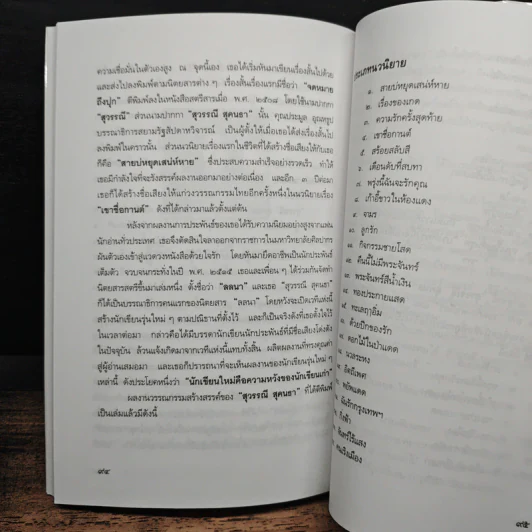 ความเชื่อมั่นในตัวเองสูง ณ จุดนี้เอง เธอได้เริ่มหันมาเขียนเรื่องสั้นไปด้วย
และส่งไปลงพิมพ์ตามนิตยสารต่าง ๆ เรื่องสั้นเรื่องแรกมีชื่อว่า "จดหมาย
ถึงปุก" ตีพิมพ์ลงในหนังสือสตรีสารเมื่อ พ.ศ. ๒๕๐๘ โดยใช้นามปากกา
"สุวรรณี" ส่วนนามปากกา "สุวรรณี สุคนธา" นั้น คุณประมูล อุณหธูป
บรรณาธิการสยามรัฐสัปดาหวิจารณ์ เป็นผู้ตั้งให้เมื่อเธอได้ส่งเรื่องสั้นไป
ลงพิมพ์ในคราวนั้น ส่วนนวนิยายเรื่องแรกในชีวิตที่ได้สร้างชื่อเสียงให้กับเธอ
ก็คือ "สายบ่หยุดเสน่ห์หาย" ซึ่งประสบความสำเร็จอย่างรวดเร็ว ทำให้
เธอมีกำลังใจที่จะรังสรรค์ผลงานออกมาอย่างต่อเนื่อง และอีก ๓ ปีต่อมา
เธอก็ได้สร้างชื่อเสียงให้แก่วงวรรณกรรมไทยอีกครั้งหนึ่งในนวนิยายเรื่อง
"เขาชื่อกานต์" ดังที่ได้กล่าวมาแล้วตั้งแต่ต้น
หลังจากผลงานการประพันธ์ของเธอได้รับความนิยมอย่างสูงจากแฟน
นักอ่านทั่วประเทศ เธอจึงตัดสินใจลาออกจากราชการในมหาวิทยาลัยศิลปากร
ผันตัวเองเข้าสู่แวดวงหนังสือด้วยใจรัก โดยหันมายึดอาชีพเป็นนักประพันธ์
เต็มตัว จวบจนกระทั่งในปี พ.ศ. ๒๕๑๕ เธอและเพื่อน ๆ ได้ร่วมกันจัดทำ
นิตยสารสตรีขึ้นมาเล่มหนึ่ง ตั้งชื่อว่า "ลลนา" และเธอ "สุวรรณี สุคนธา"
ก็ได้เป็นบรรณาธิการคนแรกของนิตยสาร "ลลนา" โดยหวังจะเปิดเวทีแห่งนี้
สร้างนักเขียนรุ่นใหม่ ๆ ตามปณิธานที่ตั้งไว้ และก็เป็นจริงดังที่เธอตั้งใจไว้
ในเวลาต่อมา กล่าวคือได้มีบรรดานักเขียนนักประพันธ์ที่มีชื่อเสียงโด่งดัง
ในปัจจุบัน ล้วนแจ้งเกิดมาจากเวทีแห่งนี้แทบทั้งสิ้น ผลิตผลงานที่ทรงคุณค่า
สู่ผู้อ่านเสมอมา และเธอก็ปรารถนาที่จะเห็นผลงานของนักเขียนรุ่นใหม่ ๆ
เหล่านี้ ดังประโยคหนึ่งว่า "นักเขียนใหม่คือความหวังของนักเขียนเก่า"
ผลงานวรรณกรรมสร้างสรรค์ของ "สุวรรณี สุคนธา" ที่ได้ตีพิมพ์
เป็นเล่มแล้วมีดังนี้
๙๔
ประเภทนวนิยาย
๑. สายบ่หยุดเสน่ห์หาย
๒. เรื่องของเกด
๓. ความรักครั้งสุดท้าย
๔. เขาชื่อกานต์
๕. สร้อยสลับสี
๖. เดือนดับที่สบทา
๗. พรุ่งนี้ฉันจะรักคุณ
๘. เก้าอี้ขาวในห้องแดง
๙. จามร
๑๐. ลูกรัก
๑๑. กิจกรรมชายโสด
๑๒. คืนนี้ไม่มีพระจันทร์
๑๓. พระจันทร์สีน้ำเงิน
๑๔. ทองประกายแสด
๑๕. ทะเลฤาอิ่ม
๑๖. ด้วยปีกของรัก
๑๗. ดอกไม้ในป่าแดด
๑๘. นวลระหง
๑๙. อัตถ์เพศ
๒๐. พยัพแดด
๒๑. ฉันรักกรุงเทพฯ
๒๒. กิ่งฟ้า
๒๓. จันทร์ไร้แสง
๒๔. คนเริงเมือง
๙๕